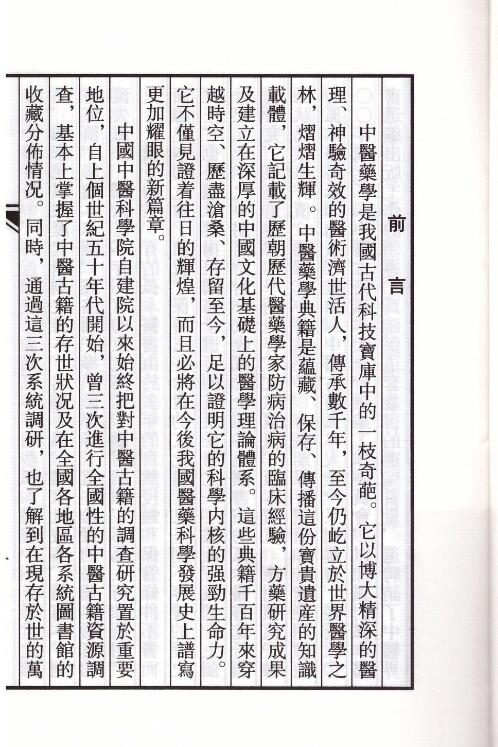 前言
中醫藥學是我國古代科技寶庫中的一枝奇葩。它以博大精深的醫
理、神驗奇效的醫術濟世活人，傳承數千年，至今仍屹立於世界醫學之
林，熠熠生輝。中醫藥學典籍是蘊藏、保存、傳播這份寶貴遺産的知識
載體，它記載了歷朝歷代醫藥學家防病治病的臨床經驗，方藥研究成果
及建立在深厚的中國文化基礎上的醫學理論體系。這些典籍千百年來穿
越時空、歷盡滄桑、存留至今，足以證明它的科學内核的强勁生命力。
它不僅見證着往日的輝煌，而且必將在今後我國醫藥科學發展史上譜寫
更加耀眼的新篇章。
中國中醫科學院自建院以來始終把對中醫古籍的調查研究置於重要
地位，自上個世紀五十年代開始，曾三次進行全國性的中醫古籍資源調
查，基本上掌握了中醫古籍的存世狀况及在全國各地區各系統圖書館的
收藏分佈情况。同時，通過這三次系統調研，也了解到在現存於世的萬